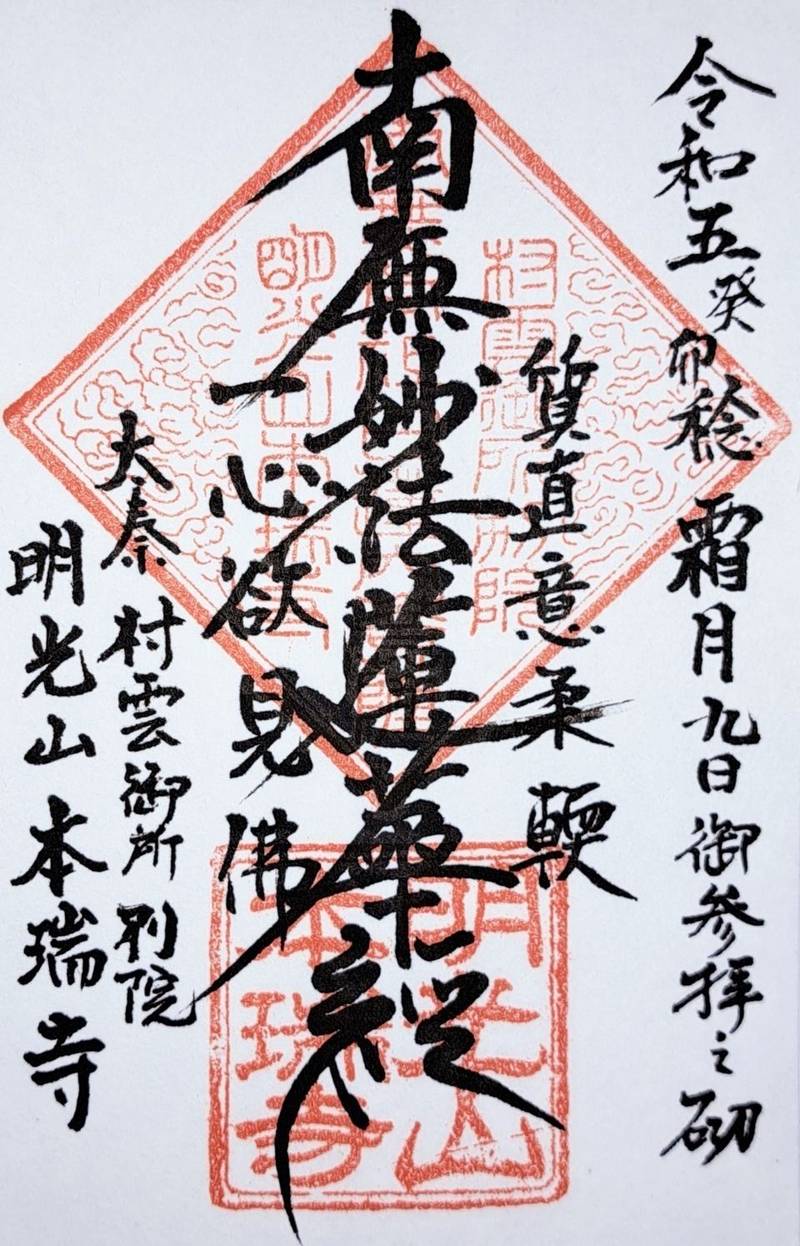 令和五癸卯稔 霜月九日御参拝之砌
質直意柔軟
南無妙法蓮華経
一心欲見佛
太秦 村雲御所別院
明光山本瑞寺
村雲御所別院
明光山本瑞寺
明光山
本瑞寺